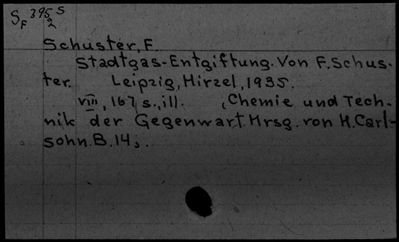 SF 395 S
2
Schuster, F.
Stadtgas-Entgiftung. Von F. Schus-
ter. Leipzig, Hirzel, 1935.
VIII, 167 S., ill. (Chemie und Tech-
nik der Gegenwart. Hrsg. von H. Carl-
sohn. B. 14).